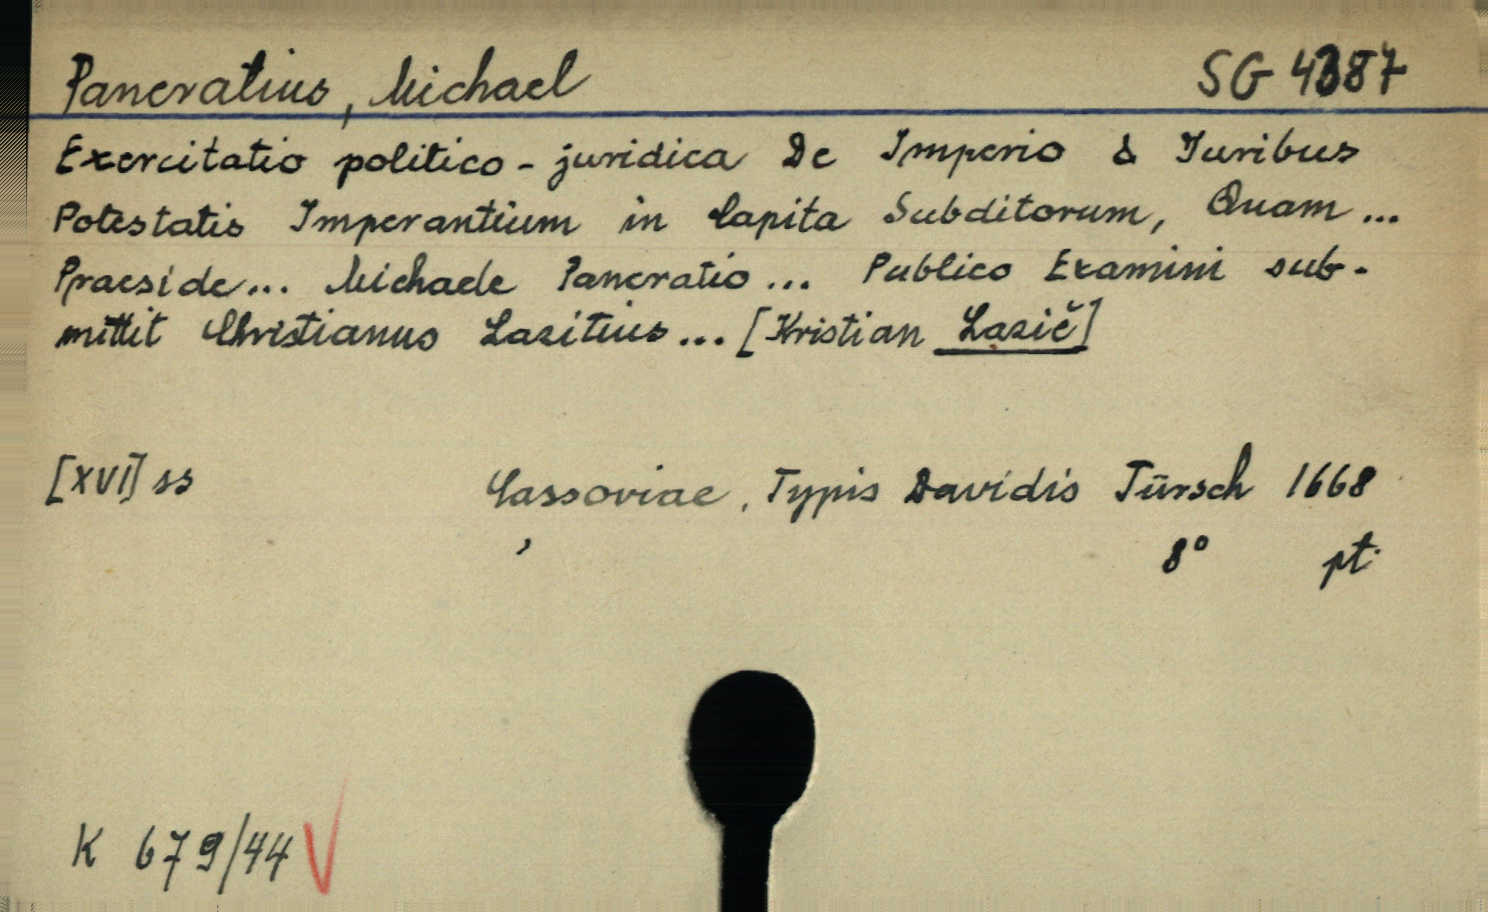 Pancratius, Michael SG 4387
Exercitatio politico-juridica De Imperio & Juribus
Potestatis Imperantium in Capita Subditorum, Quam...
Praeside... Michaele Pancratio... Publico Examini sub-
mittit Christianus Lazitius... [Kristian Lazič]
[XVI] ss Cassoviae, Typis Davidis Türsch 1668
8° pt.
K 679/44 V